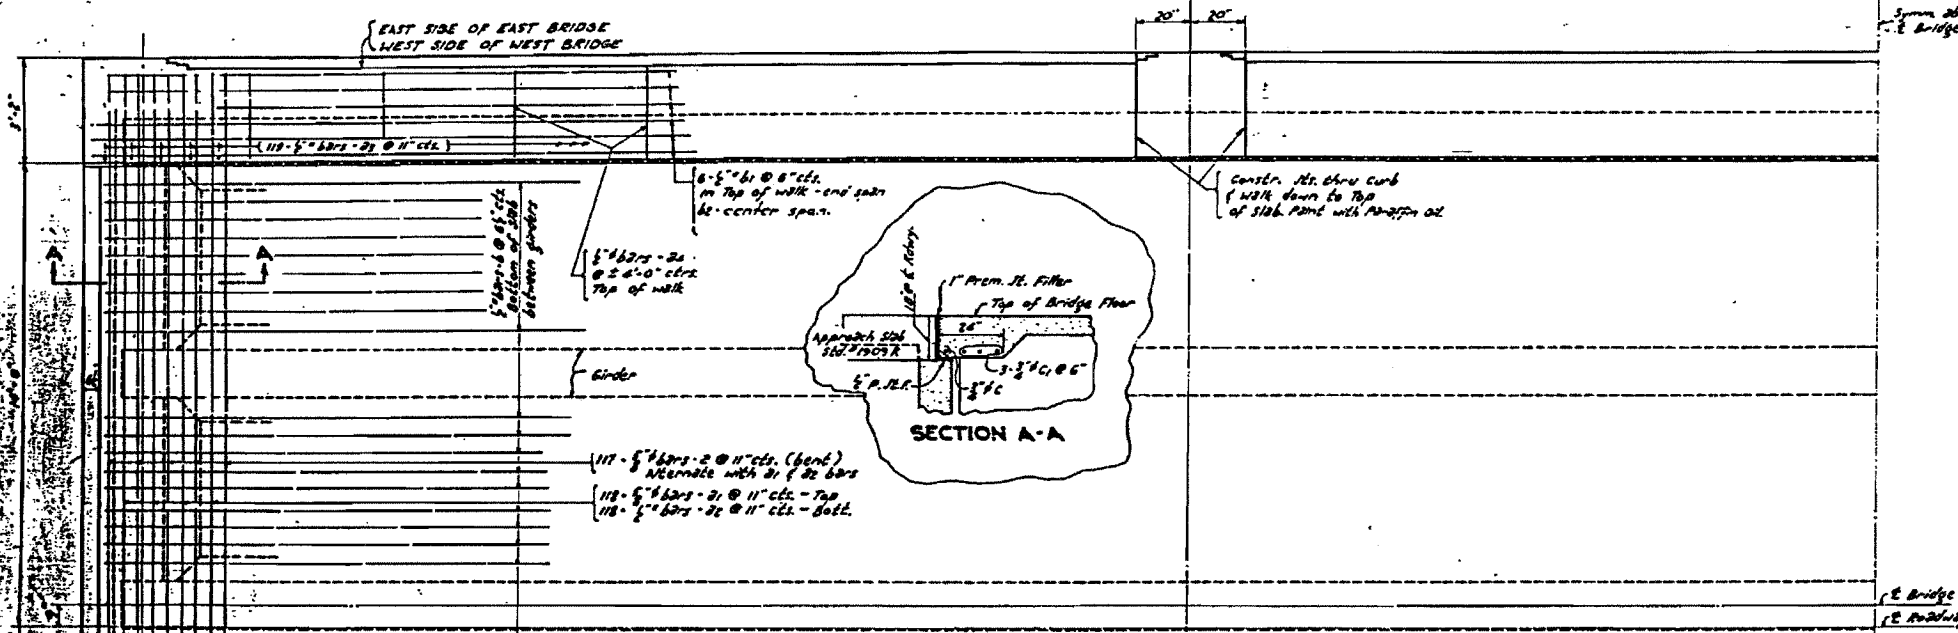 EAST SIDE OF EAST BRIDGE
WEST SIDE OF WEST BRIDGE
20" 20"
Symm. ab
℄ Bridge
(119 - ½"⌀ bars - a3 @ 11" cts.)
6 - ½"⌀ b1 @ 6" cts.
in Top of walk - end span
b2 - center span.
Constr. Jts. thru Curb
& walk down to Top
of Slab. Paint with Paraffin Oil
½"⌀ bars - b @ 6½" cts.
Bottom of slab
between girders
A A
½"⌀ bars - a4
@ ± 4'-0" ctrs.
Top of walk
1" Prem. Jt. Filler
Top of Bridge Floor
24"
Approach Slab
Std. # 1909 R
3 - ¾"⌀ C1 @ 6"
½" P. Jt. F.
¾"⌀ C
SECTION A-A
Girder
117 - ⅝"⌀ bars - a @ 11" cts. (bent)
Alternate with a1 & a2 bars
118 - ⅝"⌀ bars - a1 @ 11" cts. - Top
118 - ½"⌀ bars - a2 @ 11" cts. - Bott.
℄ Bridge
℄ Roadw